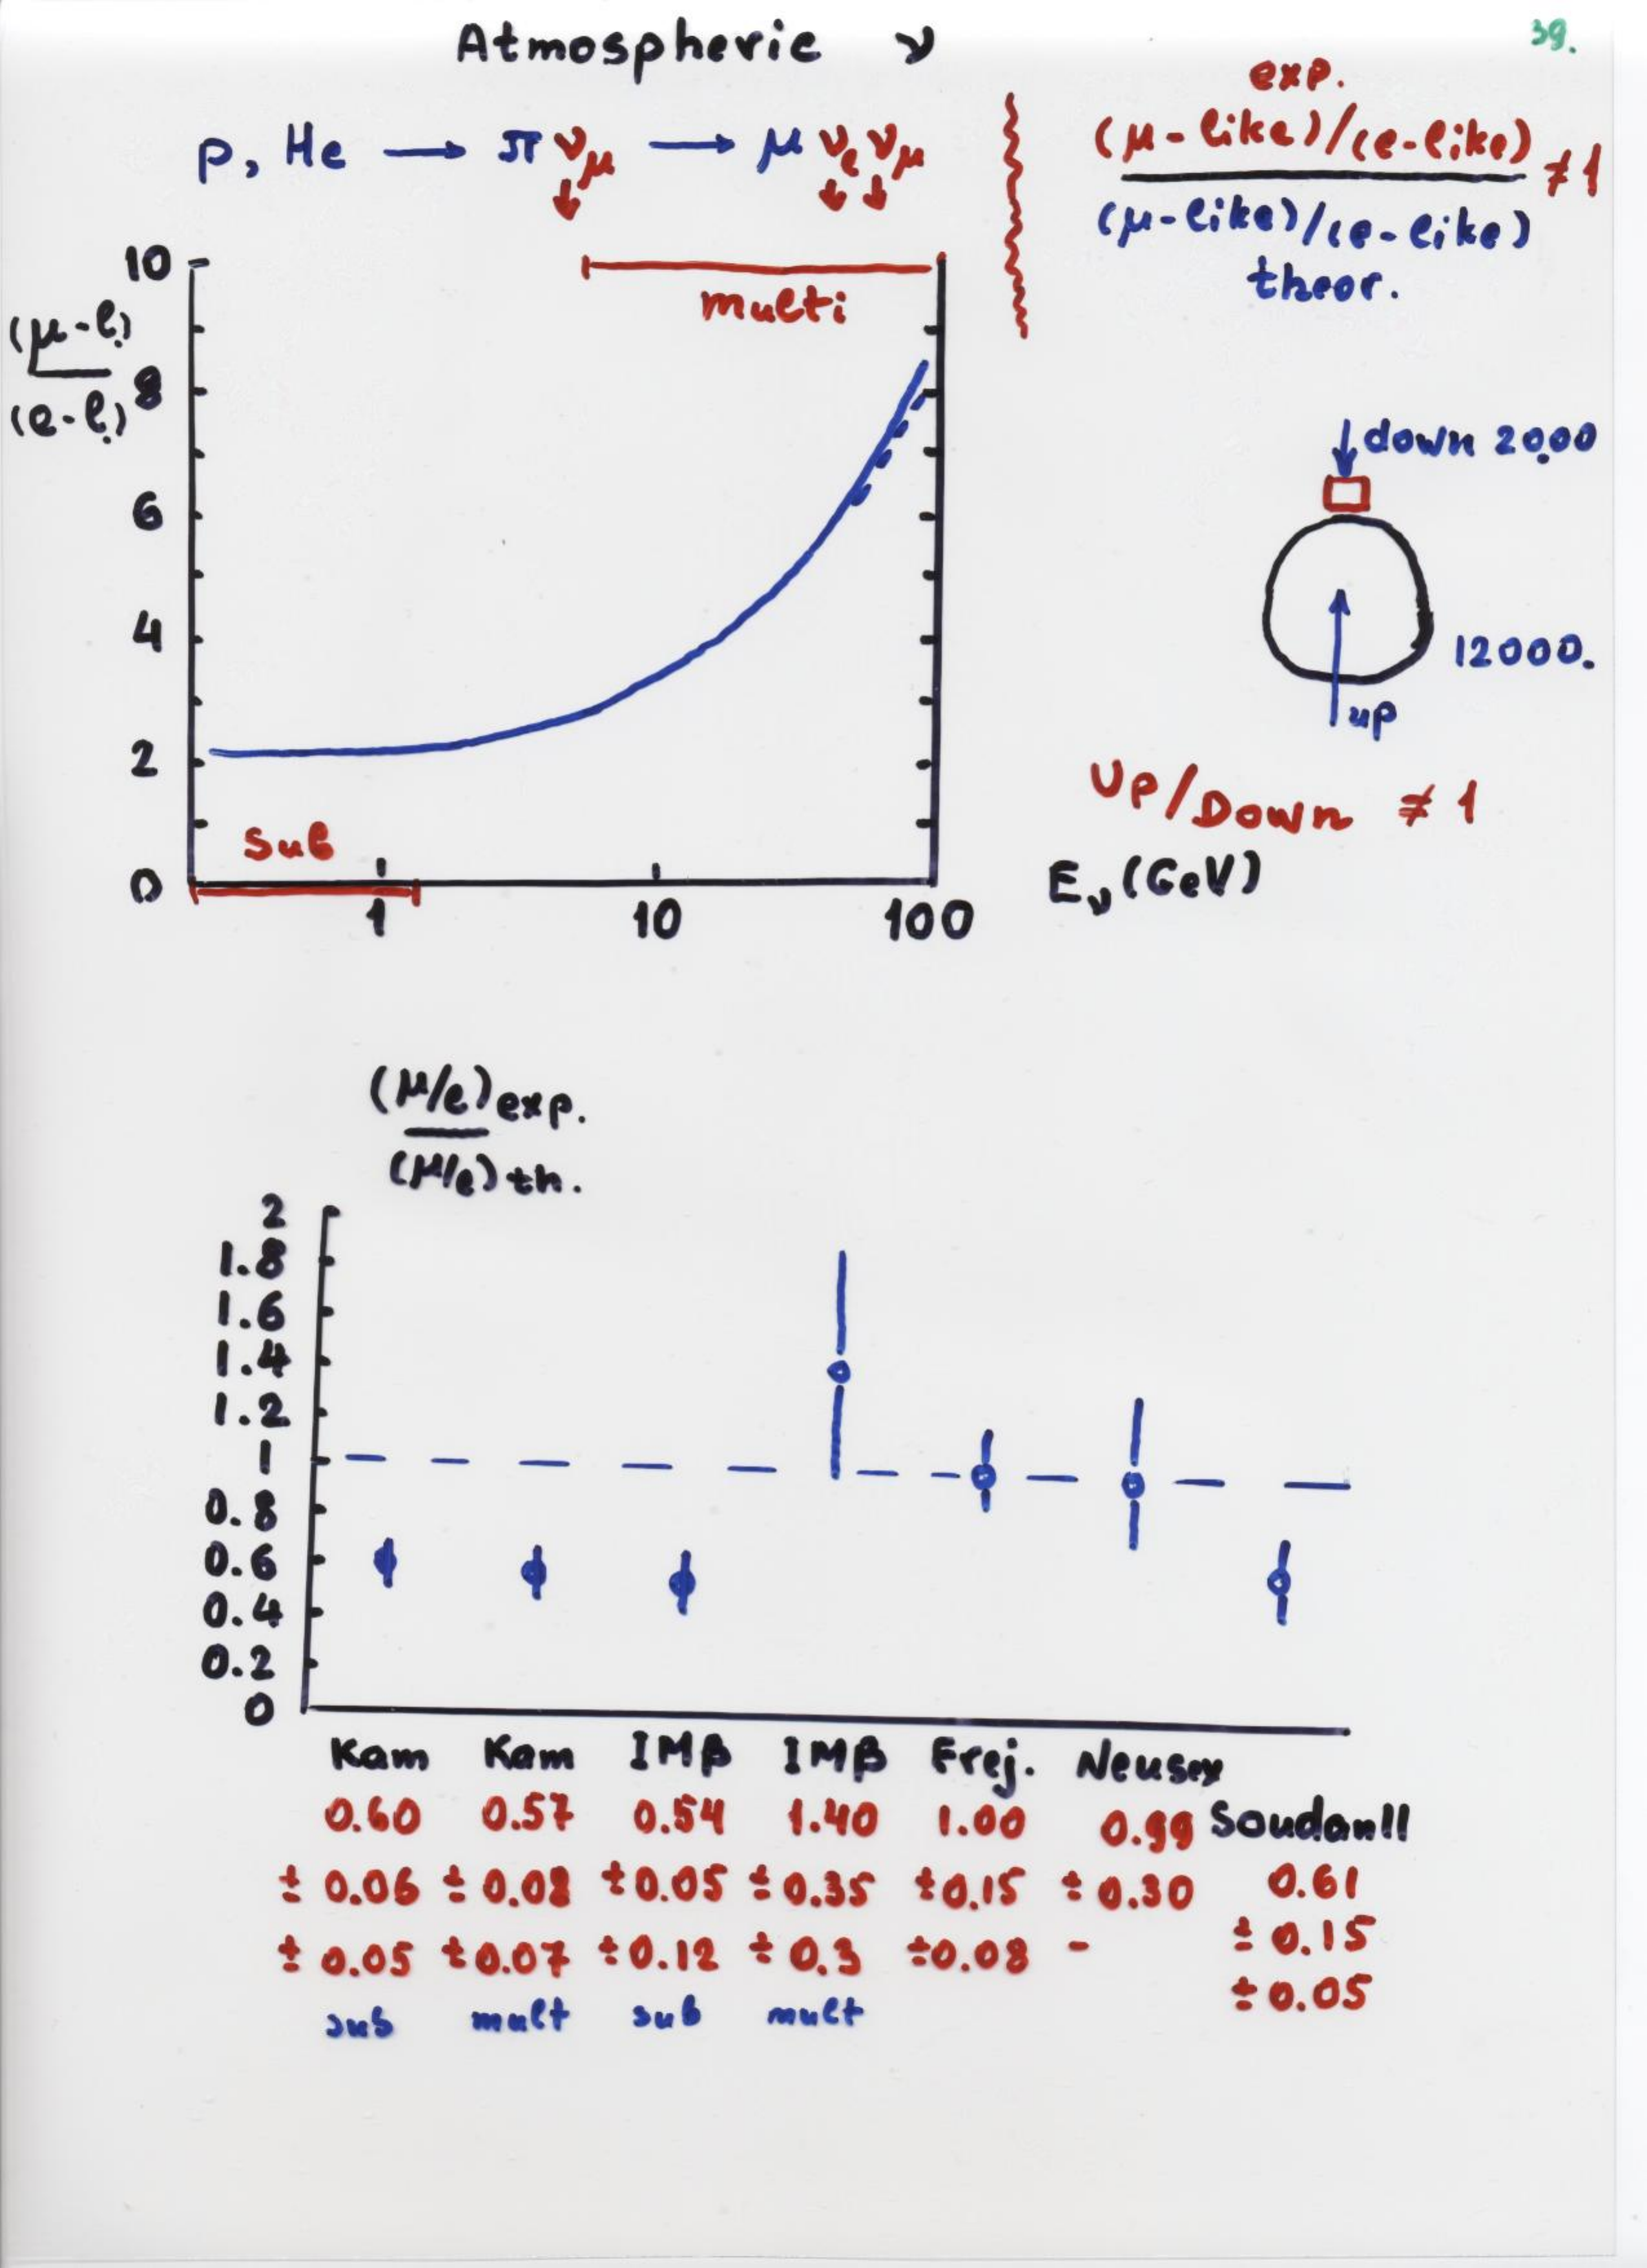 Atmospheric ν
39.
p, He → π ν_μ → μ ν_e ν_μ
exp.
(μ-like)/(e-like)
≠1
(μ-like)/(e-like)
theor.
(μ-l.)
(e-l.)
10
8
6
4
2
0
multi
sub
1
10
100
E_ν (GeV)
down 2000
12000.
up
Up/Down ≠ 1
(μ/e) exp.
(μ/e) th.
2
1.8
1.6
1.4
1.2
1
0.8
0.6
0.4
0.2
0
Kam Kam IMB IMB Frej. Neusex Soudan!!
0.60 0.57 0.54 1.40 1.00 0.99 0.61
± 0.06 ± 0.08 ± 0.05 ± 0.35 ± 0.15 ± 0.30 ± 0.15
± 0.05 ± 0.07 ± 0.12 ± 0.3 ± 0.08 - ± 0.05
sub mult sub mult